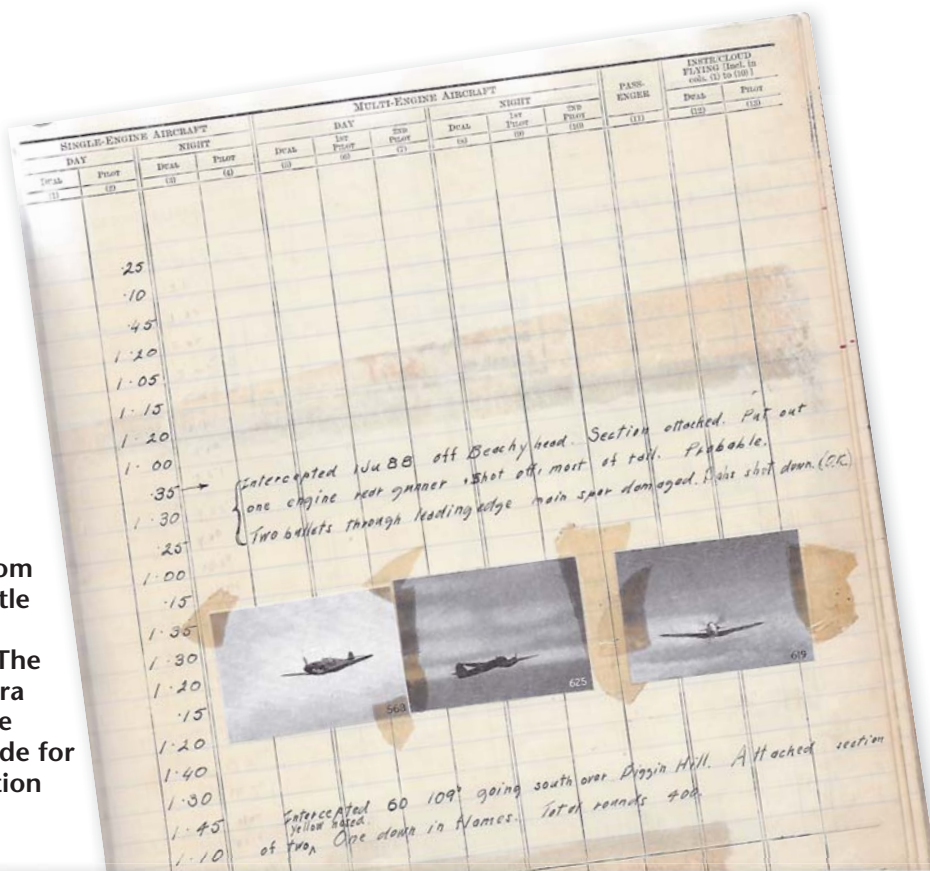 SINGLE-ENGINE AIRCRAFT
MULTI-ENGINE AIRCRAFT
PASS-
ENGER
INSTR/CLOUD
FLYING [Incl. in
cols. (1) to (10)]
DAY
NIGHT
DAY
NIGHT
DUAL
PILOT
DUAL
PILOT
DUAL
1ST
PILOT
2ND
PILOT
DUAL
1ST
PILOT
2ND
PILOT
DUAL
PILOT
(1)
(2)
(3)
(4)
(5)
(6)
(7)
(8)
(9)
(10)
(11)
(12)
(13)
·25
·10
·45
1·20
1·05
1·15
1·20
1·00
·35 →
1·30
·25
1·00
·15
1·35
1·30
1·20
·15
1·20
1·40
1·30
1·45
1·10
Intercepted 1Ju 88 off Beachy head. Section attached. Put out
one engine rear gunner. Shot off most of tail. Probable.
Two bullets through leading edge main spar damaged. shot down. (O.K.)
568
625
619
Intercepted 60 109s going south over Biggin Hill. Attached section
yellow nosed.
of two^ One down in flames. Total rounds 400.
om
tle
The
ra
e
de for
tion